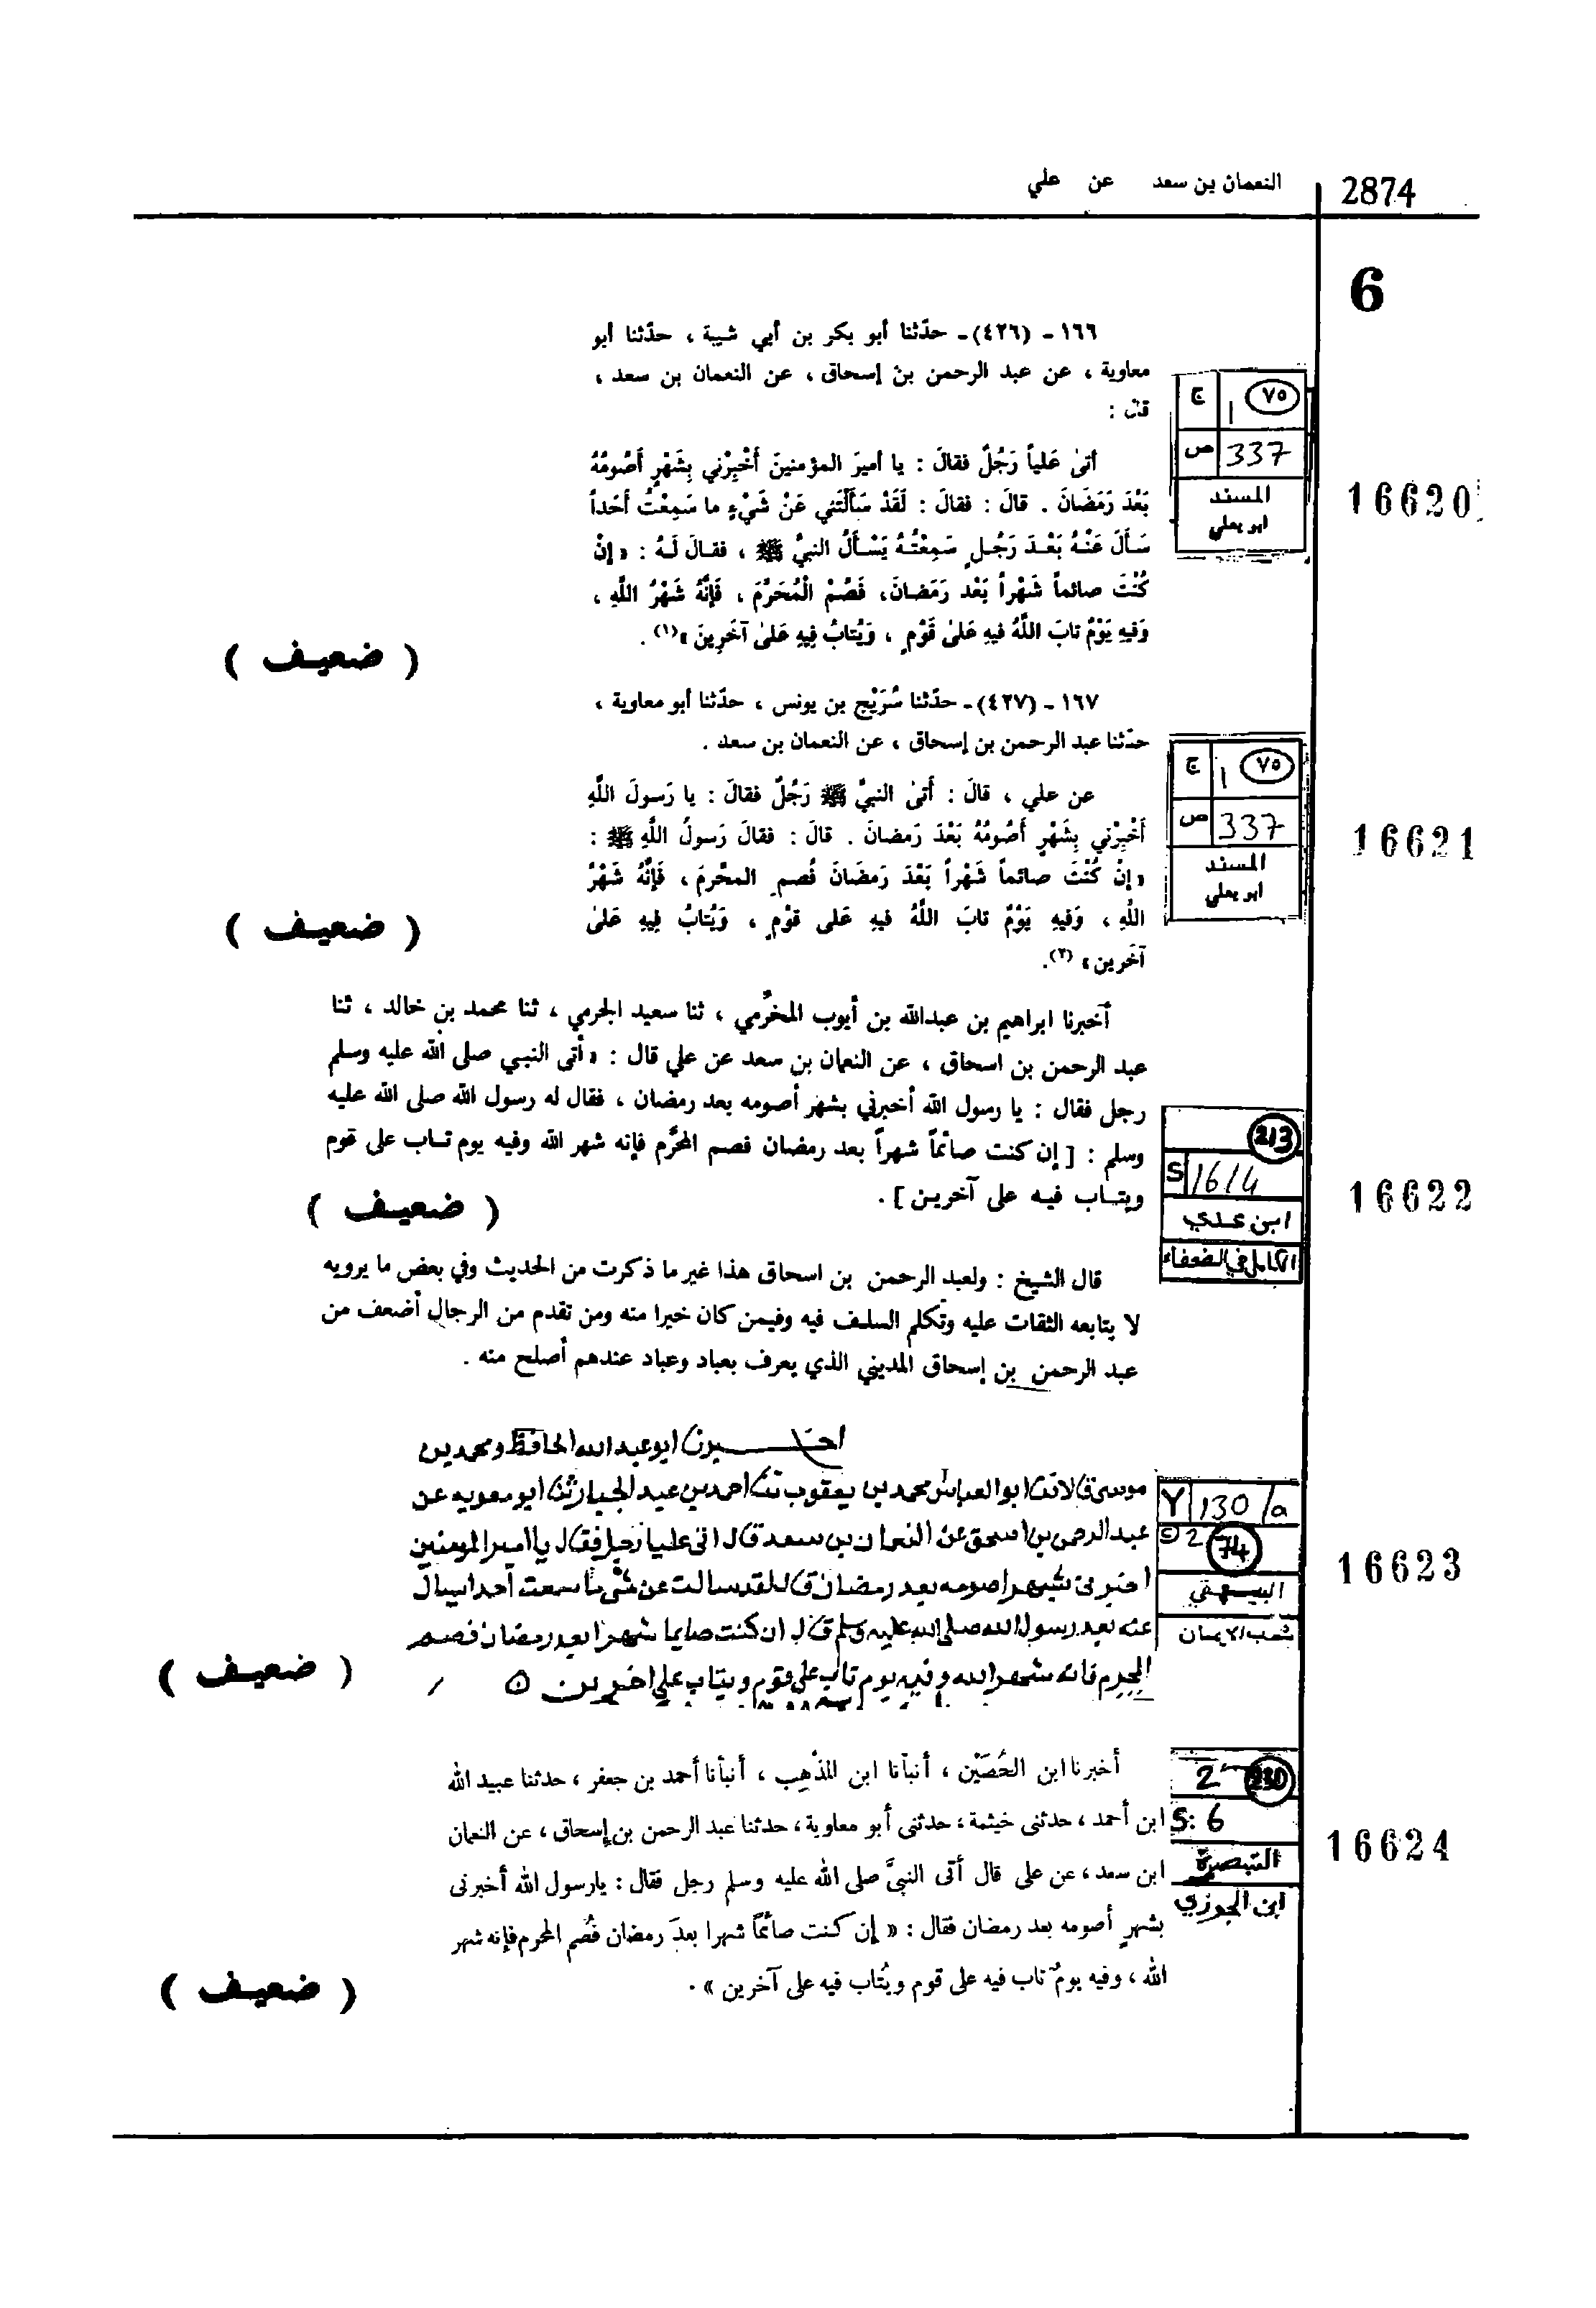 2874
النعمان بن سعد عن علي
6
١٦٦ - (٤٢٦)- حدّثنا أبو بكر بن أبي شيبة ، حدّثنا أبو
معاوية ، عن عبد الرحمن بن إسحاق ، عن النعمان بن سعد ،
قال :
أتى عَلياً رَجُلٌ فقالَ : يا أميرَ المؤمنينَ أَخْبِرْني بِشَهْرٍ أَصُومُهُ
بَعْدَ رَمَضَانَ . قالَ : فقالَ : لَقَدْ سَأَلْتَني عَنْ شَيْءٍ ما سَمِعْتُ أحَداً
سَأَلَ عَنْهُ بَعْدَ رَجُلٍ سَمِعْتُهُ يَسْأَلُ النبيَّ ﷺ ، فقالَ لَهُ : «إنْ
كُنْتَ صائماً شَهْراً بَعْد رَمَضانَ، فَصُمْ الْمُحَرَّمَ ، فَإنَّهُ شَهْرُ اللَّهِ ،
وَفيهِ يَوْمٌ تابَ اللَّهُ فيهِ عَلىٰ قَوْمٍ ، وَيُتابُ فِيهِ عَلىٰ آخَرِينَ»(١) .
( ضعيف )
ج ١ ٧٥
ص 337
المسند
ابو يعلي
16620
١٦٧ - (٤٢٧)- حدّثنا سُرَيْج بن يونس ، حدّثنا أبو معاوية ،
حدّثنا عبد الرحمن بن إسحاق ، عن النعمان بن سعد .
عن علي ، قالَ : أَتىٰ النبيَّ ﷺ رَجُلٌ فقالَ : يا رَسولَ اللَّهِ
أَخْبِرْني بِشَهْرٍ أَصُومُهُ بَعْدَ رَمضانَ . قالَ : فقالَ رَسولُ اللَّهِ ﷺ :
«إنْ كُنْتَ صائماً شَهْراً بَعْدَ رَمَضَانَ فَصُمِ المحَّرمَ ، فَإنَّهُ شَهْرُ
اللهِ ، وَفيهِ يَوْمٌ تابَ اللَّهُ فيهِ عَلى قَوْمٍ ، وَيُتابُ فِيهِ عَلىٰ
آخَرين» (٢).
( ضعيف )
ج ١ ٧٥
ص 337
المسند
ابو يعلي
16621
أخبرنا ابراهيم بن عبدالله بن أيوب المخرَّمي ، ثنا سعيد الجرمي ، ثنا محمد بن خالد ، ثنا
عبد الرحمن بن اسحاق ، عن النعمان بن سعد عن علي قال : «أتى النبي صلى الله عليه وسلم
رجل فقال : يا رسول الله أخبرني بشهر أصومه بعد رمضان ، فقال له رسول الله صلى الله عليه
وسلم : [ إن كنت صائماً شهراً بعد رمضان فصم المحرَّم فإنه شهر الله وفيه يوم تاب على قوم
ويتاب فيه على آخرين ] .
( ضعيف )
213
S 1614
ابن عدي
الكامل في الضعفاء
16622
قال الشيخ : ولعبد الرحمن بن اسحاق هذا غير ما ذكرت من الحديث وفي بعض ما يرويه
لا يتابعه الثقات عليه وتكلم السلف فيه وفيمن كان خيرا منه ومن تقدم من الرجال أضعف من
عبد الرحمن بن إسحاق المديني الذي يعرف بعباد وعباد عندهم أصلح منه .
اخبرنا ابو عبد الله الحافظ ومحمد بن
موسى قالا نثا ابوالعباس محمد بن يعقوب نثا احمد بن عبد الجبار نثا ابو معويه عن
عبد الرحمن بن اسحق عن النعمان بن سعد قال اتى عليا رجل فقال يا امير المومنين
اخبرني بشهر اصومه بعد رمضان قال لقد سالت عن شي ما سمعت احدا سال
عنه بعد رسول الله صلى الله عليه وسلم قال ان كنت صايما شهرا بعد رمضان فصم
المحرم فانه شهر الله وفيه يوم تاب على قوم ويتاب على اخرين
( ضعيف )
Y 130/a
S 2 74
البيهقي
شعب الايمان
16623
أخبرنا ابن الحُصَيْن ، أنبأنا ابن المذْهِب ، أنبأنا أحمد بن جعفر ، حدثنا عبيد الله
ابن أحمد ، حدثنى خيثمة ، حدثنى أبو معاوية ، حدثنا عبد الرحمن بن إسحاق ، عن النعمان
ابن سعد ، عن على قال أتى النبىَّ صلى الله عليه وسلم رجل فقال : يارسول الله أخبرنى
بشهرٍ أصومه بعد رمضان فقال : « إن كنت صائماً شهرا بعدَ رمضان فصُم المحرم فإنه شهر
الله ، وفيه يومٌ تاب فيه على قوم ويُتاب فيه على آخرين » .
( ضعيف )
2 230
S: 6
التبصرة
ابن الجوزي
16624